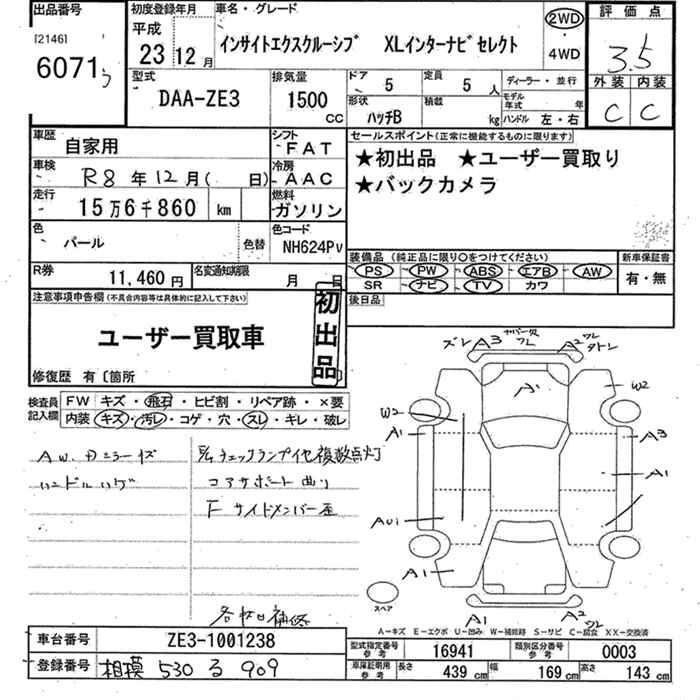 出品番号 初度登録年月 車名・グレード 評価点
[2146] 平成 2WD
6071 23 12月 インサイトエクスクルーシブ XLインターナビセレクト 4WD 3.5
型式 排気量 ドア 5 定員 5人 ディーラー・並行 外装 内装
DAA-ZE3 1500 CC 形状 ハッチB 積載 kg モデル年式 年 C C
ハンドル 左・右
車歴 自家用 シフト FAT セールスポイント(正常に機能するものに限ります)
車検 R8年12月( 日) 冷房 AAC ★初出品 ★ユーザー買取り
走行 15万6千860 km 燃料 ガソリン ★バックカメラ
色 パール 色替 色コード NH624PV
装備品(純正品に限り○をつけてください) 新車保証書
R券 11,460円 名変通知期限 月 日 PS PW ABS エアB AW 有・無
SR ナビ TV カワ
注意事項申告欄(不具合内容等は具体的に記入して下さい) 初出品 後日品
ユーザー買取車
修復歴 有〔箇所
検査員記入欄 FW キズ・飛石・ヒビ割・リペア跡・×要
内装 キズ・汚レ・コゲ・穴・スレ・キレ・破レ
ズレ A3 ナンバー灾 フレ A2 ワレ タトン
A1 W2
W2
A1 A3
A1
AU1
A1
スペア
A1 A2
AW.ドミラーキズ
ハンドルハゲ
チェックランプ他複数点灯
コアサポート曲り
Fサイドメンバー歪
各杯ロ補修
A-キズ E-エクボ U-凹み W-補修跡 S-サビ C-腐食 XX-交換済
車台番号 ZE3-1001238 型式指定番号 参考 16941 類別区分番号 参考 0003
登録番号 相模 530 る 909 車庫証明用 参考 長さ 439 cm 幅 169 cm 高さ 143 cm